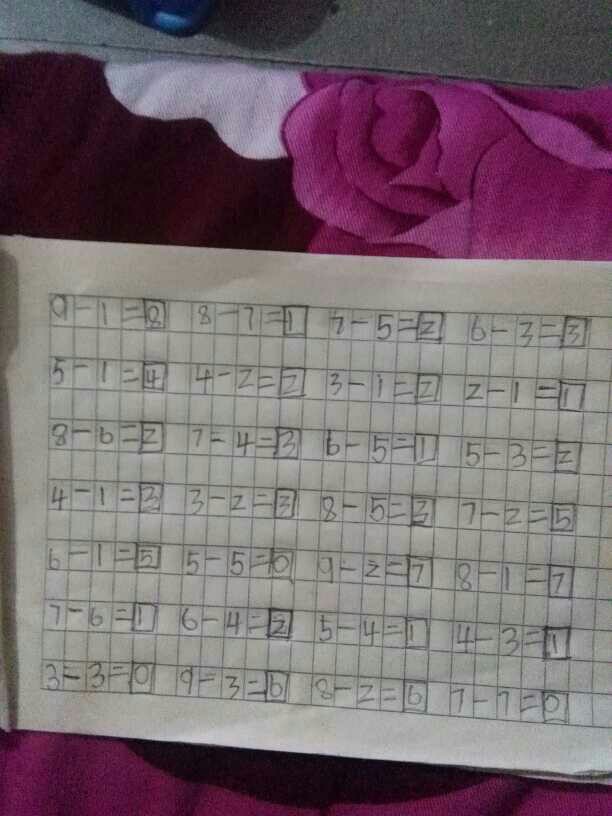 9-1=8 8-7=1 7-5=2 6-3=3
5-1=4 4-2=2 3-1=2 2-1=1
8-6=2 7-4=3 6-5=1 5-3=2
4-1=3 3-2=3 8-5=3 7-2=5
6-1=5 5-5=0 9-2=7 8-1=7
7-6=1 6-4=2 5-4=1 4-3=1
3-3=0 9-3=6 8-2=6 7-7=0